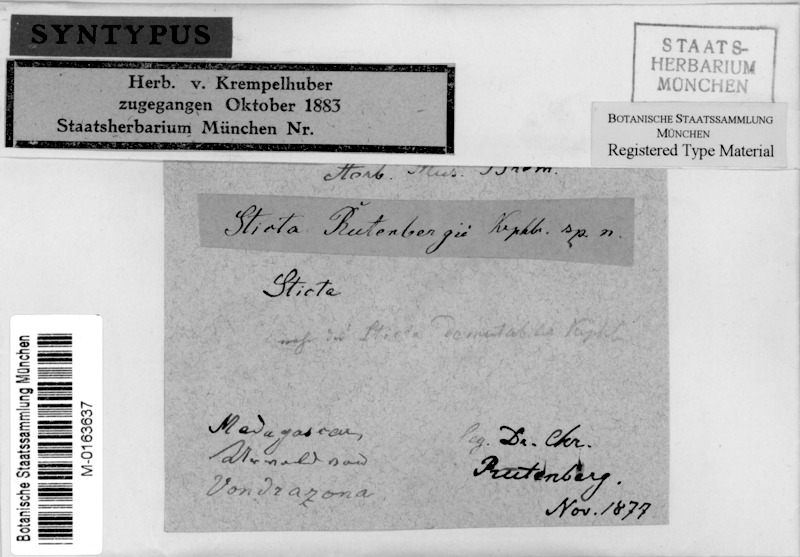 SYNTYPUS
Herb. v. Krempelhuber
zugegangen Oktober 1883
Staatsherbarium München Nr.
STAATS-
HERBARIUM
MÜNCHEN
BOTANISCHE STAATSSAMMLUNG
MÜNCHEN
Registered Type Material
Herb. Mus. Brem.
Sticta Rutenbergii Krphb. sp. n.
Sticta
Sticta Krphb
Madagascar,
Urwald von
Vondrazona
leg. Dr. Chr.
Rutenberg.
Nov. 1877
Botanische Staatssammlung München
M-0163637